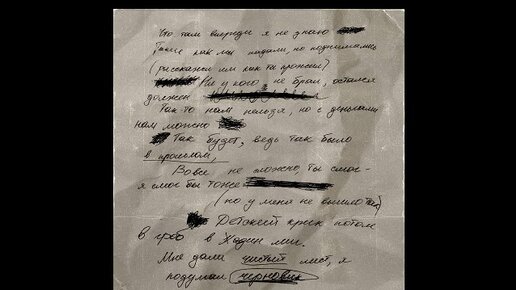 Что там впереди я не знаю
Такие как мы падали, но поднимались
(расскажи им как ты прожил)
Ни у кого не брал, остался
должен
Так-то нам нельзя, но с деньгами
нам можно
Так будет, ведь так было
в прошлом,
Вовсе не сложно, ты смог -
я смог бы тоже
(но у меня не вышло так)
Детский крик потом
в гроб в Хадин мы.
Мне дали чистый лист, я
подумал черновик